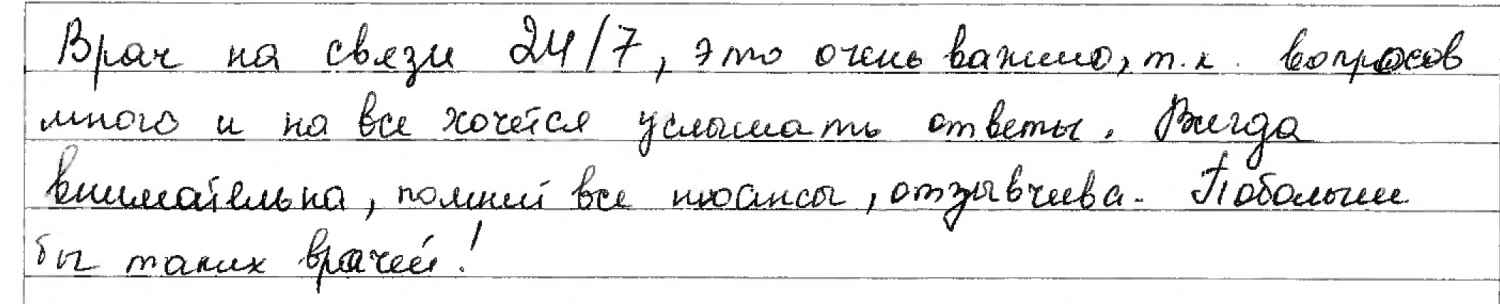 Врач на связи 24/7, это очень важно, т.к. вопросов
много и на все хочется услышать ответы. Всегда
внимательна, помнит все нюансы, отзывчива. Побольше
бы таких врачей!